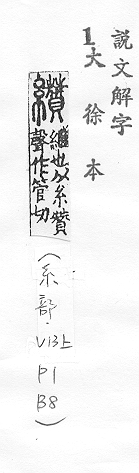 說文解字
1大徐本
纘 繼也从糸贊
聲作管切
(糸部·V13上
P1
B8)